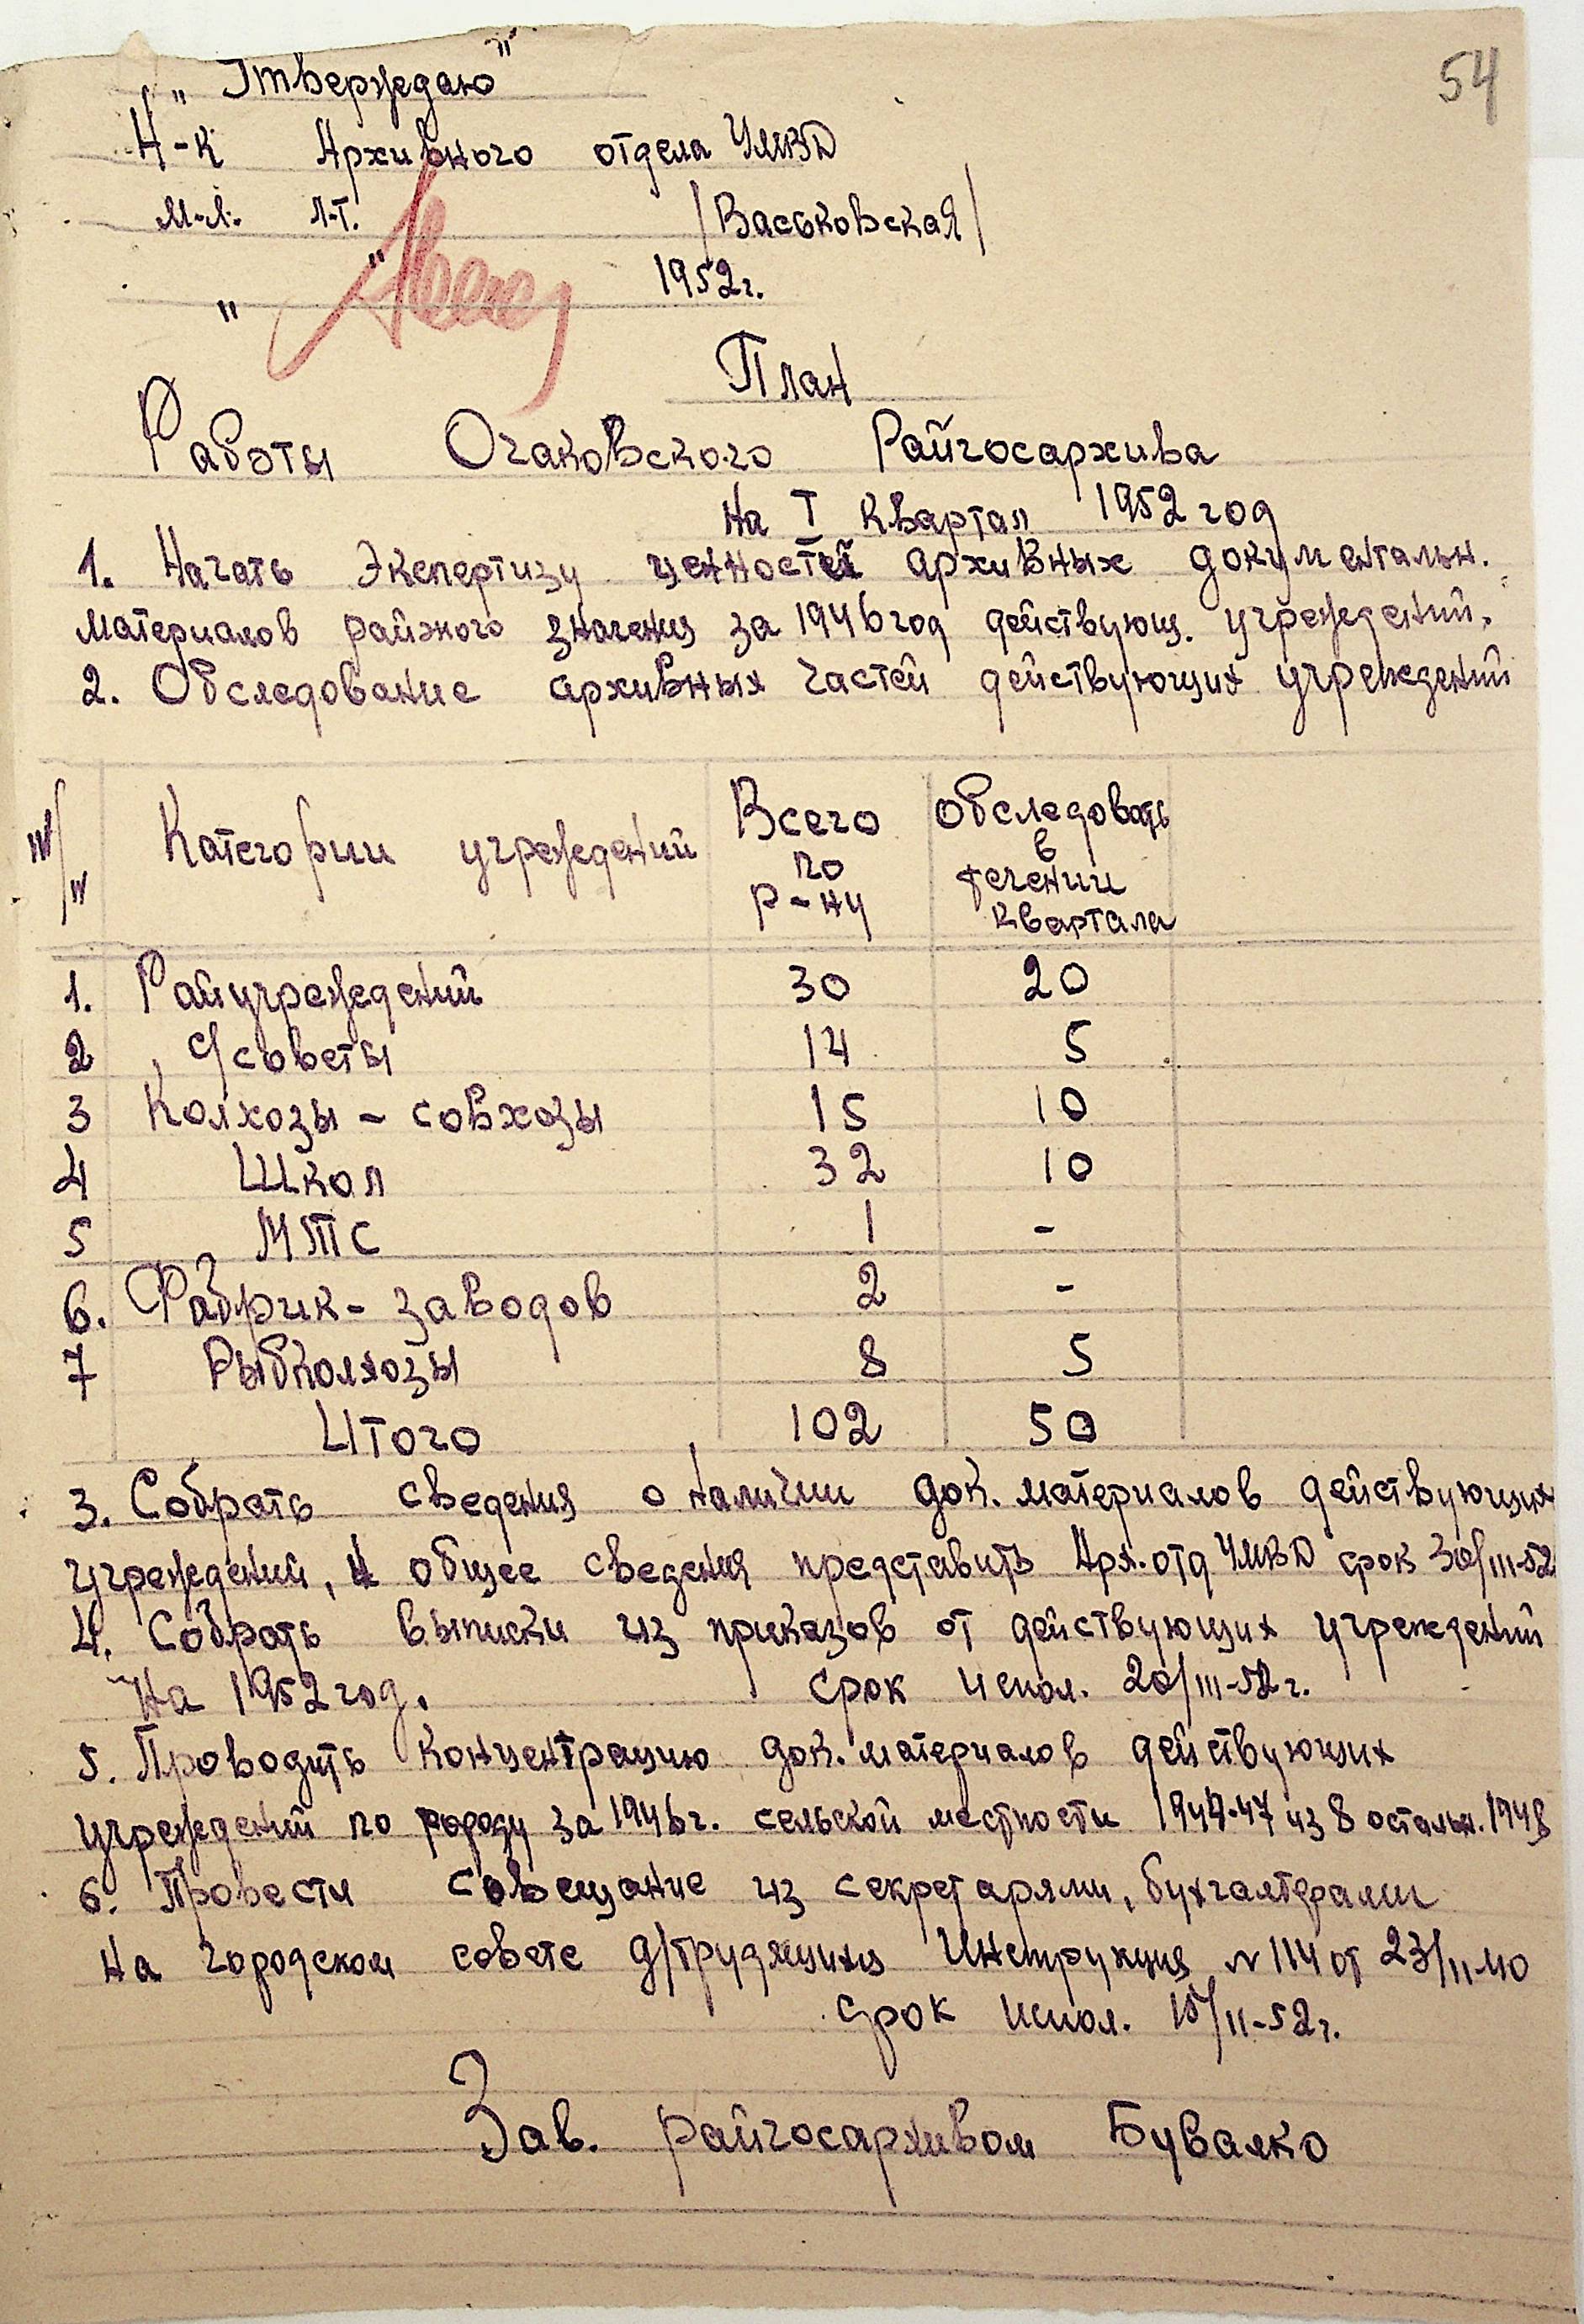 54
„Утверждаю"
Н-к Архивного отдела УМВД
м-л. л-т. /Васьковская/
" " 1952г.
План
Работы Очаковского Райгосархива
На I квартал 1952 год
1. Начать Экспертизу ценностей архивных документальн.
материалов районого значения за 1946 год действующ. учреждений.
2. Обследование архивных частей действующих учреждений
№/№ Категории учреждений Всего по р-ну Обследовать в течении квартала
1. Райучреждений 30 20
2 С/советы 14 5
3 Колхозы - совхозы 15 10
4 Школ 32 10
5 МТС 1 -
6. Фабрик - заводов 2 -
7 Рыбколхозы 8 5
Итого 102 50
3. Собрать сведения о наличии док. материалов действующих
учреждений, и общее сведения представить Арх. отд УМВД срок 30/III-52
4. Собрать выписки из приказов от действующих учреждений
На 1952 год. срок испол. 20/III-52 г.
5. Проводить концентрацию док. материалов действующих
учреждений по городу за 1946г. сельской местности 1947-47 из 8 остальн. 1948
6. Провести совещание из секретарями, бухгалтерами
на городском совете д/трудящихся Инструкция №114 от 23/II-40
срок испол. 15/II-52г.
Зав. райгосархивом Бувалко